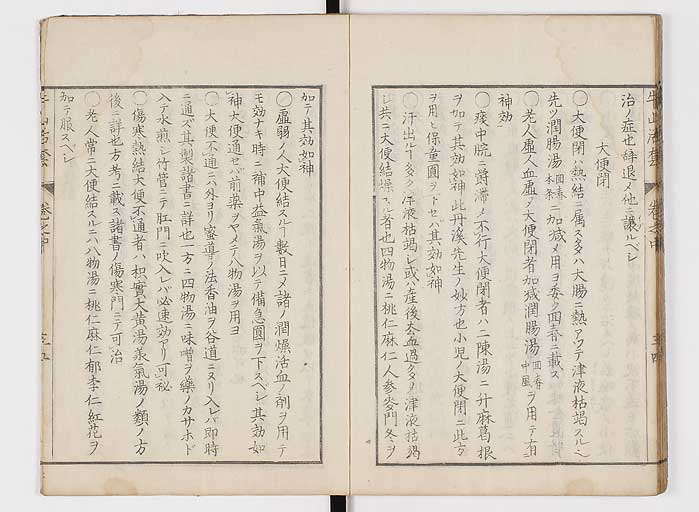 治ノ症也辞退メ他ニ譲ルベシ
大便閉
〇大便閉ハ熱結ニ属ス多ハ大腸ニ熱アツテ津液枯竭スルヘ
先ツ潤腸湯回春本条ニ加減メ用ヨ委ク回春ニ載ス
〇老人虚人血虚ノ大便閉者加減潤腸湯回春中風ヲ用テ有
神効
〇痰中脘ニ欝滞メ不行大便閉者ハ二陳湯ニ升麻葛根
ヲ加テ其効如神此丹溪先生ノ妙方也小児ノ大便閉ニ此方
ヲ用ヒ保童圓ヲトセバ其効如神
〇汗出ルヿ多ク津液枯竭シ或ハ産後去血過多メ津液枯竭
シ共ニ大便結燥スル者也四物湯ニ桃仁麻仁人参麥門冬ヲ
牛山活套 巻之中 三四
加テ其効如神
〇虚弱ノ人大便結スルヿ数日ニメ諸ノ潤燥活血ノ剤ヲ用テ
モ効ナキ時ニ補中益氣湯ヲ以テ備急圓ヲ下スベシ其効如
神大便通セバ前薬ヲヤメテ八物湯ヲ用ヨ
〇大便不通ニハ外ヨリ蜜導ノ法香油ヲ谷道ニスリ入レバ即時
ニ通ズ其製諸書ニ詳也一方ニ四物湯ニ味噌ヲ藥ノカサホド
入テ水煎シ竹管ニテ肛門ニ吹入レバ必速効アリ可秘
〇傷寒熱結大便不通者ハ枳實大黄湯承氣湯ノ類ノ方
後ニ詳也方考ニ載ス諸書ノ傷寒門ニテ可治
〇老人常ニ大便結スルニハ八物湯ニ桃仁麻仁郁李仁紅花ヲ
加テ服スベシ
牛山活套 巻之中 三五